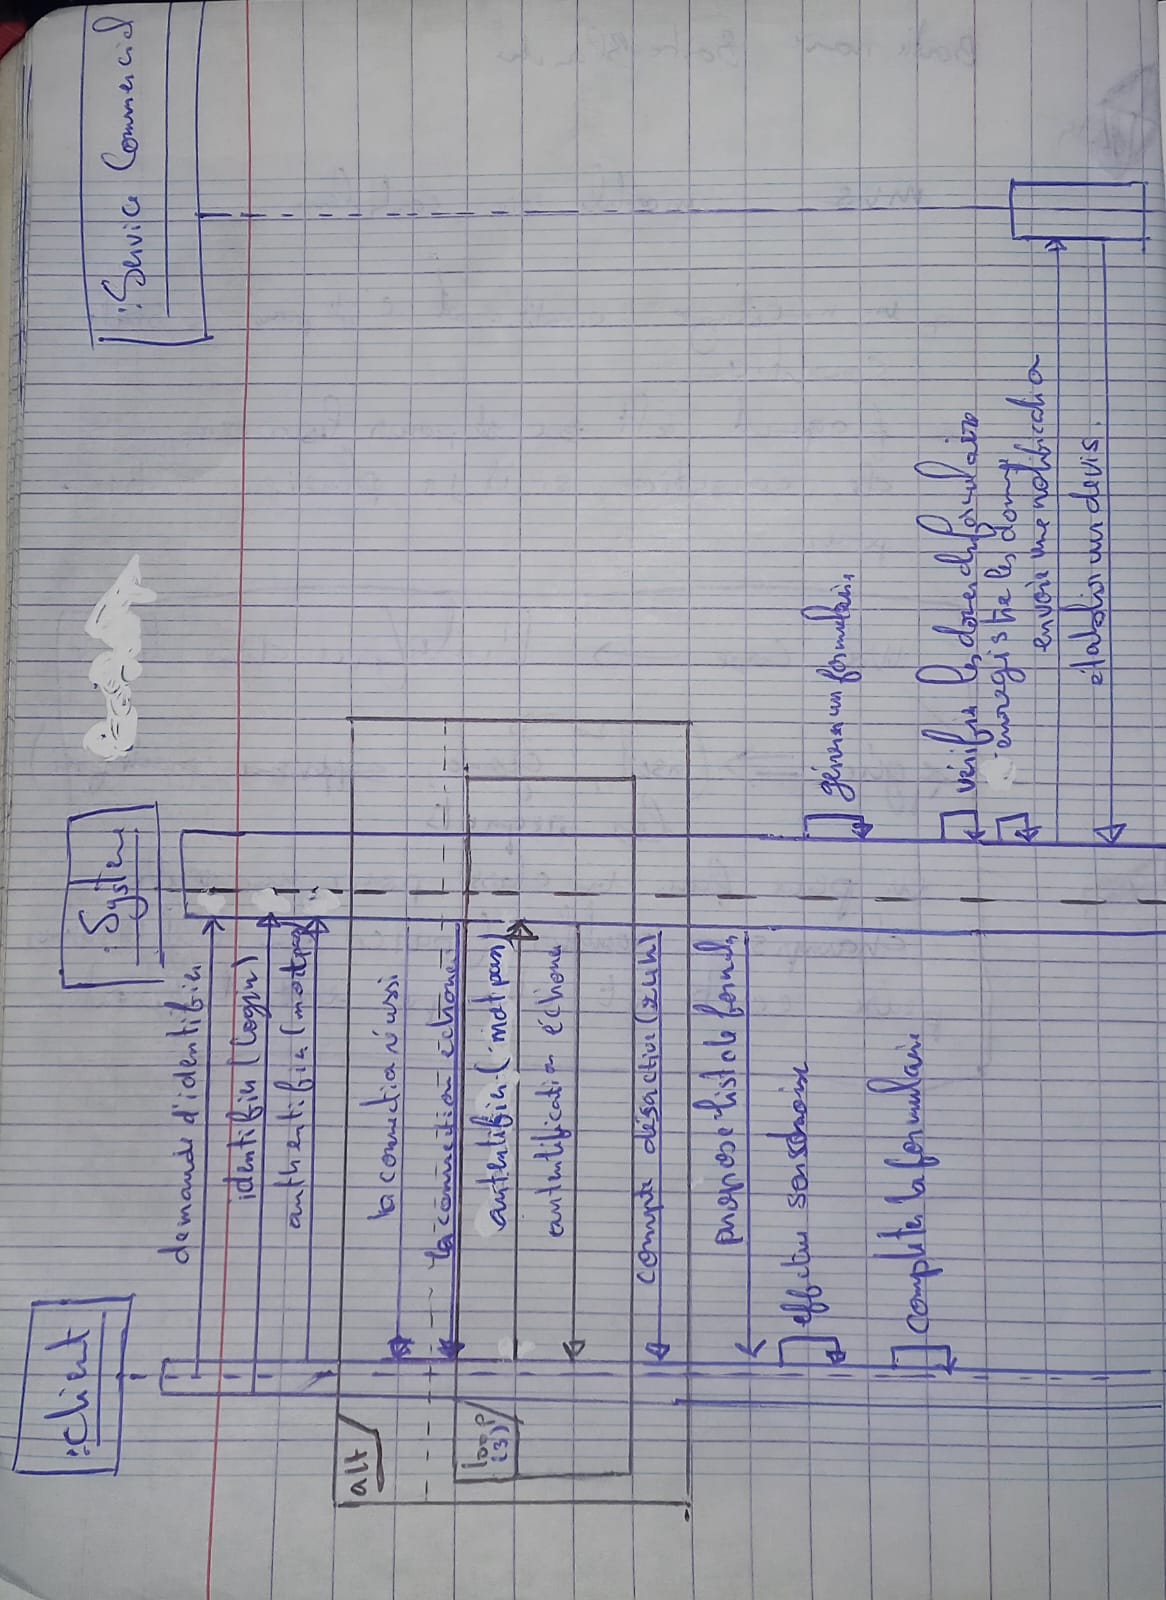 :Client
:System
:Service Commercial
demande d'identifier
identifier (login)
authentifier (motpas)
alt
la connection réussi
la connection échoue
loop
(3)
autentifier (motpas)
autentification échoue
compte désactiver (24h)
propose liste de formul
effectue son choix
générer un formulair
complete la formulaire
vérifie les donnes du formulaire
enregistre les donné
envoie une notification
établir un devis.